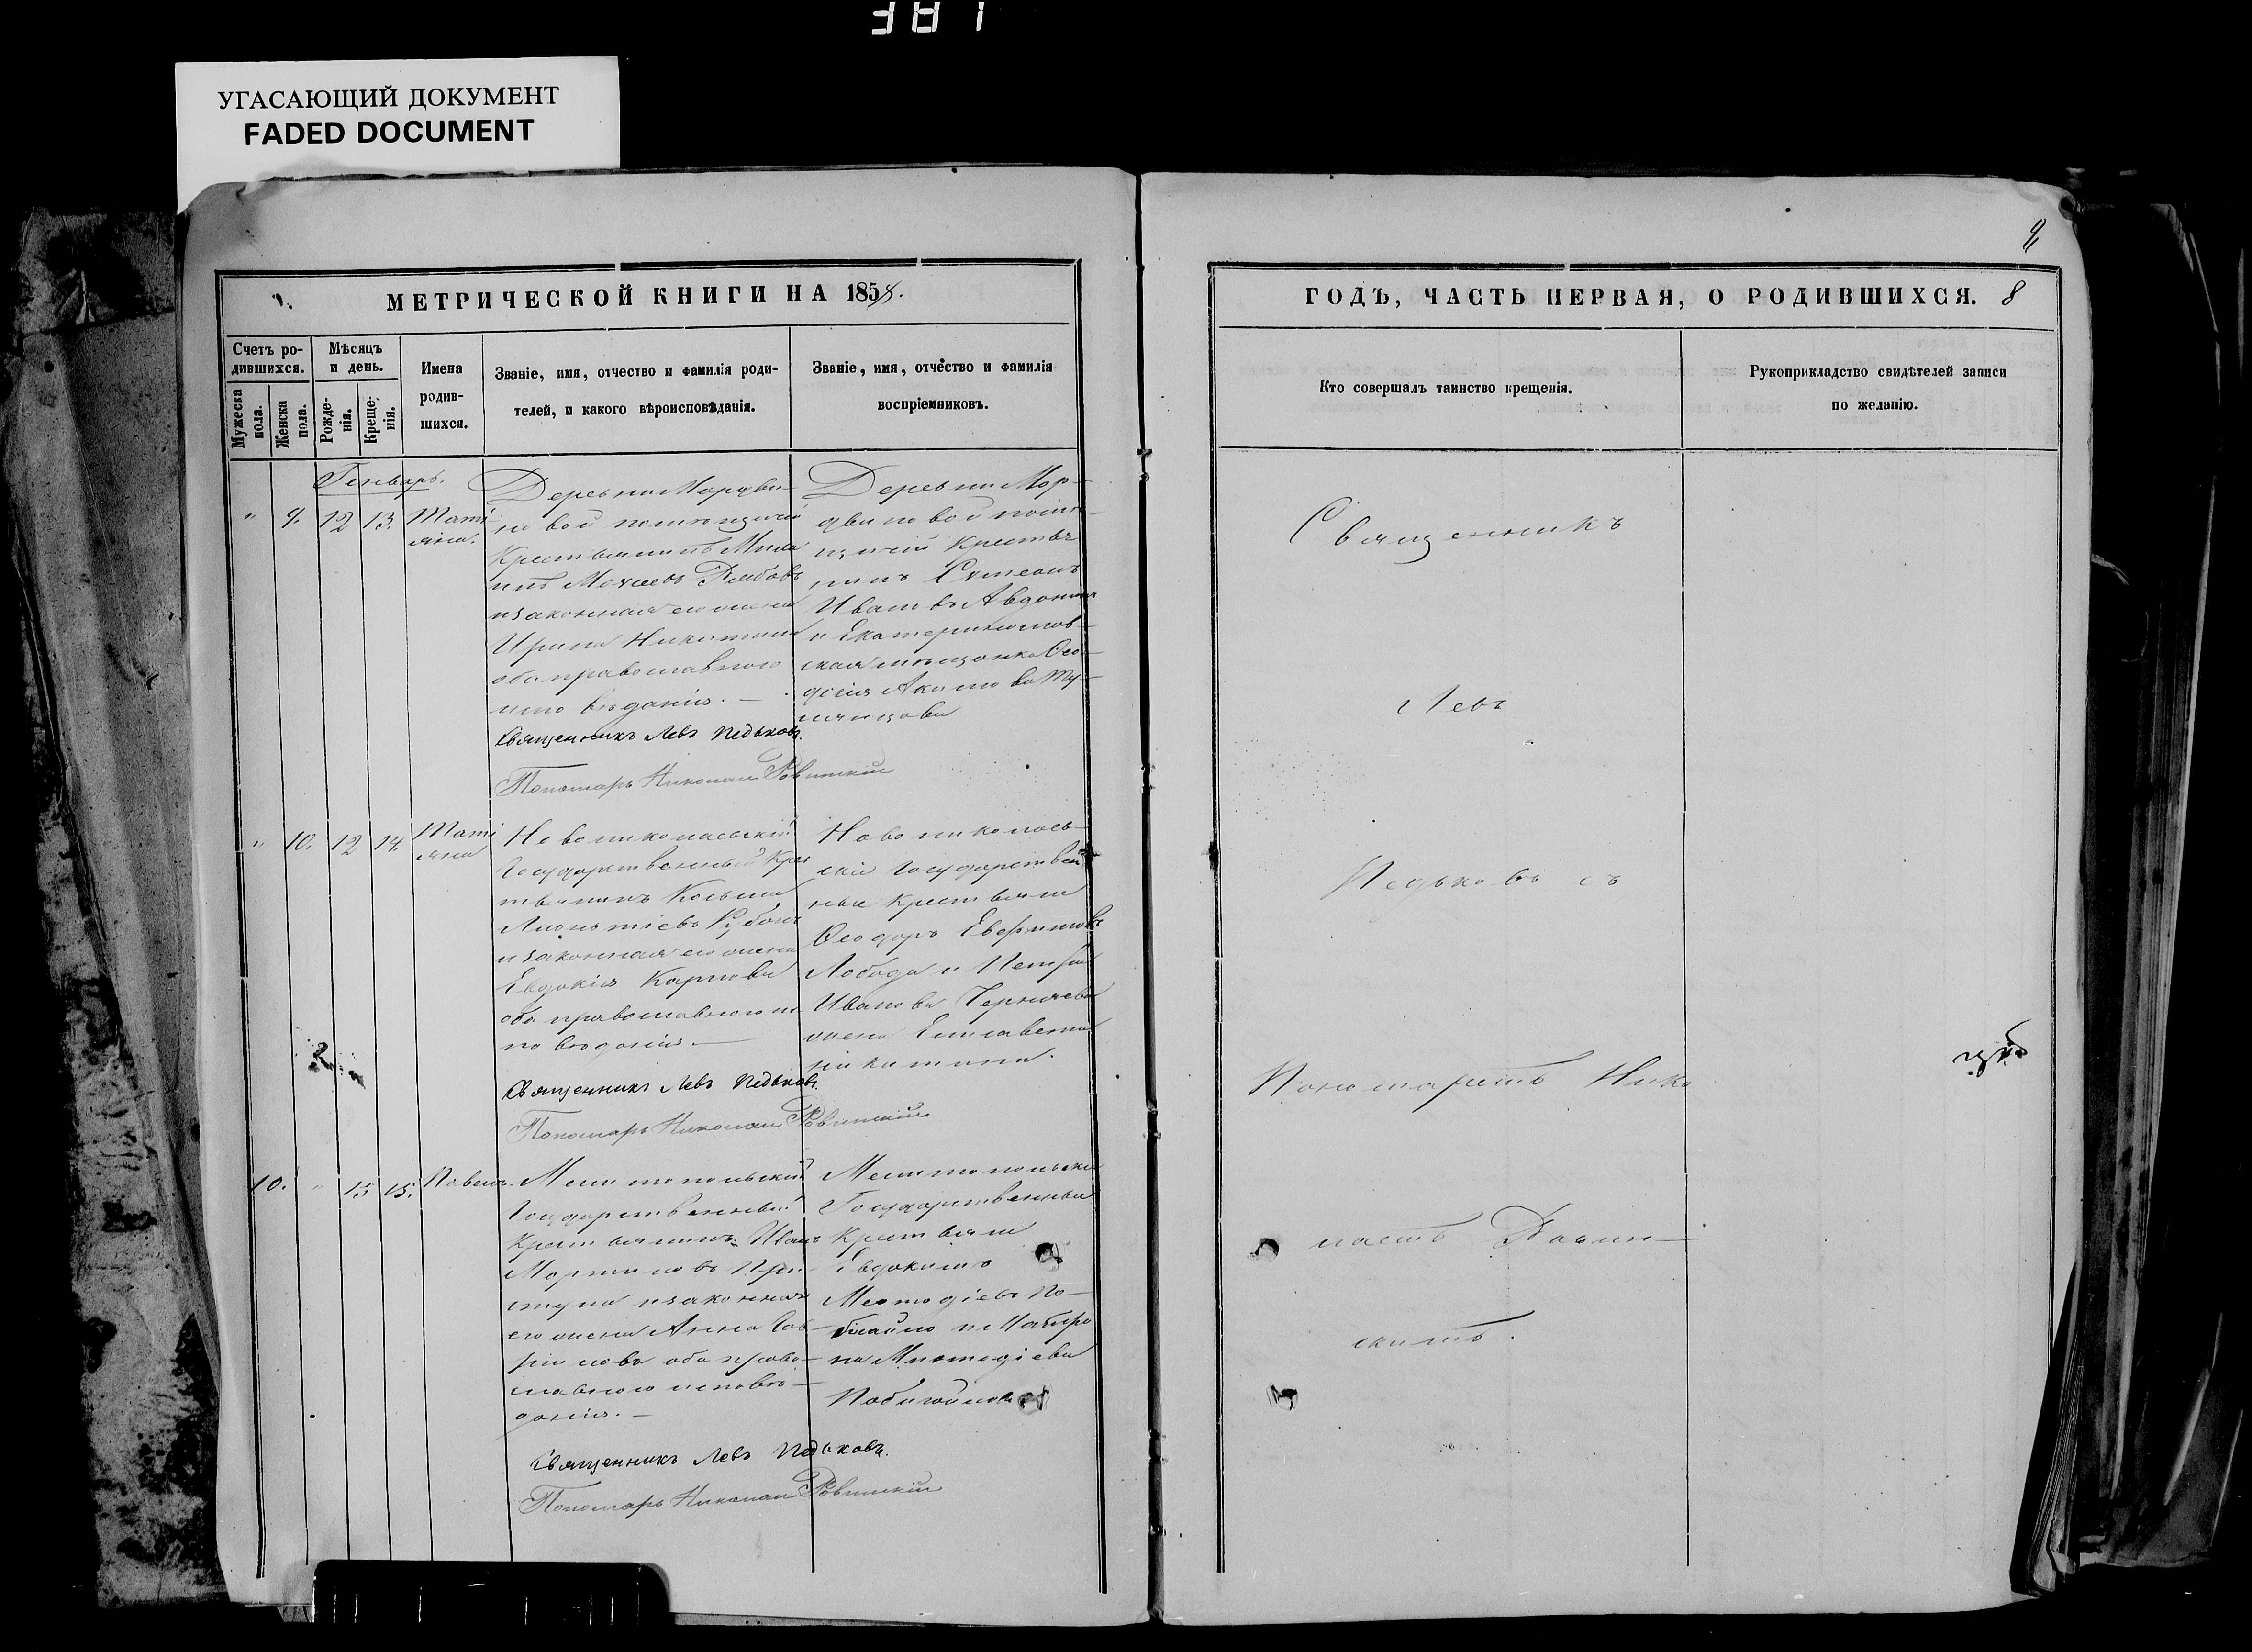 381
УГАСАЮЩИЙ ДОКУМЕНТ
FADED DOCUMENT
9
МЕТРИЧЕСКОЙ КНИГИ НА 1858.
Счетъ ро-
дившихся.
Мужеска
пола.
Женска
пола.
Мѣсяцъ
и день.
Рожде-
нія.
Креще-
нія.
Имена
родив-
шихся.
Званіе, имя, отчество и фамилія роди-
телей, и какого вѣроисповѣданія.
Званіе, имя, отчество и фамилія
воспріемниковъ.
Генварь.
" 9. 12 13. Таті
яна.
Деревни Мордви-
новой помѣщичій
Крестьянинъ
Моѵсеевъ Рябовъ
и законная его жена
Ирина Никитина
оба православнаго
исповѣданія. —
Священникъ Левъ Педьковъ.
Пономарь Николай Ровинскій
Деревни Мор-
двиновой помѣ-
щичій Крестья
нинъ Сѵмеонъ
Ивановъ Авдонинъ
и Екатеринослав-
ская мѣщанка Ѳео-
досія Акимова
" 10. 12 14. Таті
яна
Новониколаевскій
Государственный Крес
тьянинъ Косьма
и законная его жена
Евдокія Карпова
оба православнаго ис
повѣданія. —
Священникъ Левъ Педьковъ.
Пономарь Николай Ровинскій
Новониколаев-
скіе Государствен
ные Крестьяне
Ѳеодоръ Евфимовъ
Лобода и Петра
Иванова Черняева
жена Елисавета
Никитина.
10. " 15 15. Павелъ.
Мелитопольскій
Государственный
Крестьянинъ Иванъ
Мартиновъ При-
ступа и законная
его жена Анна Гав-
рилова оба право-
славнаго исповѣ-
данія. —
Священникъ Левъ Педьковъ.
Пономарь Николай Ровинскій
Мелитопольскіе
Государственные
Крестьяне
Евдокимъ
Меѳодіевъ По-
ГОДЪ, ЧАСТЬ ПЕРВАЯ, О РОДИВШИХСЯ. 8
Кто совершалъ таинство крещенія.
Рукоприкладство свидѣтелей записи
по желанію.
Священникъ
Левъ
Педьковъ съ
Пономаремъ Нико
лаемъ Ровин-
скимъ.